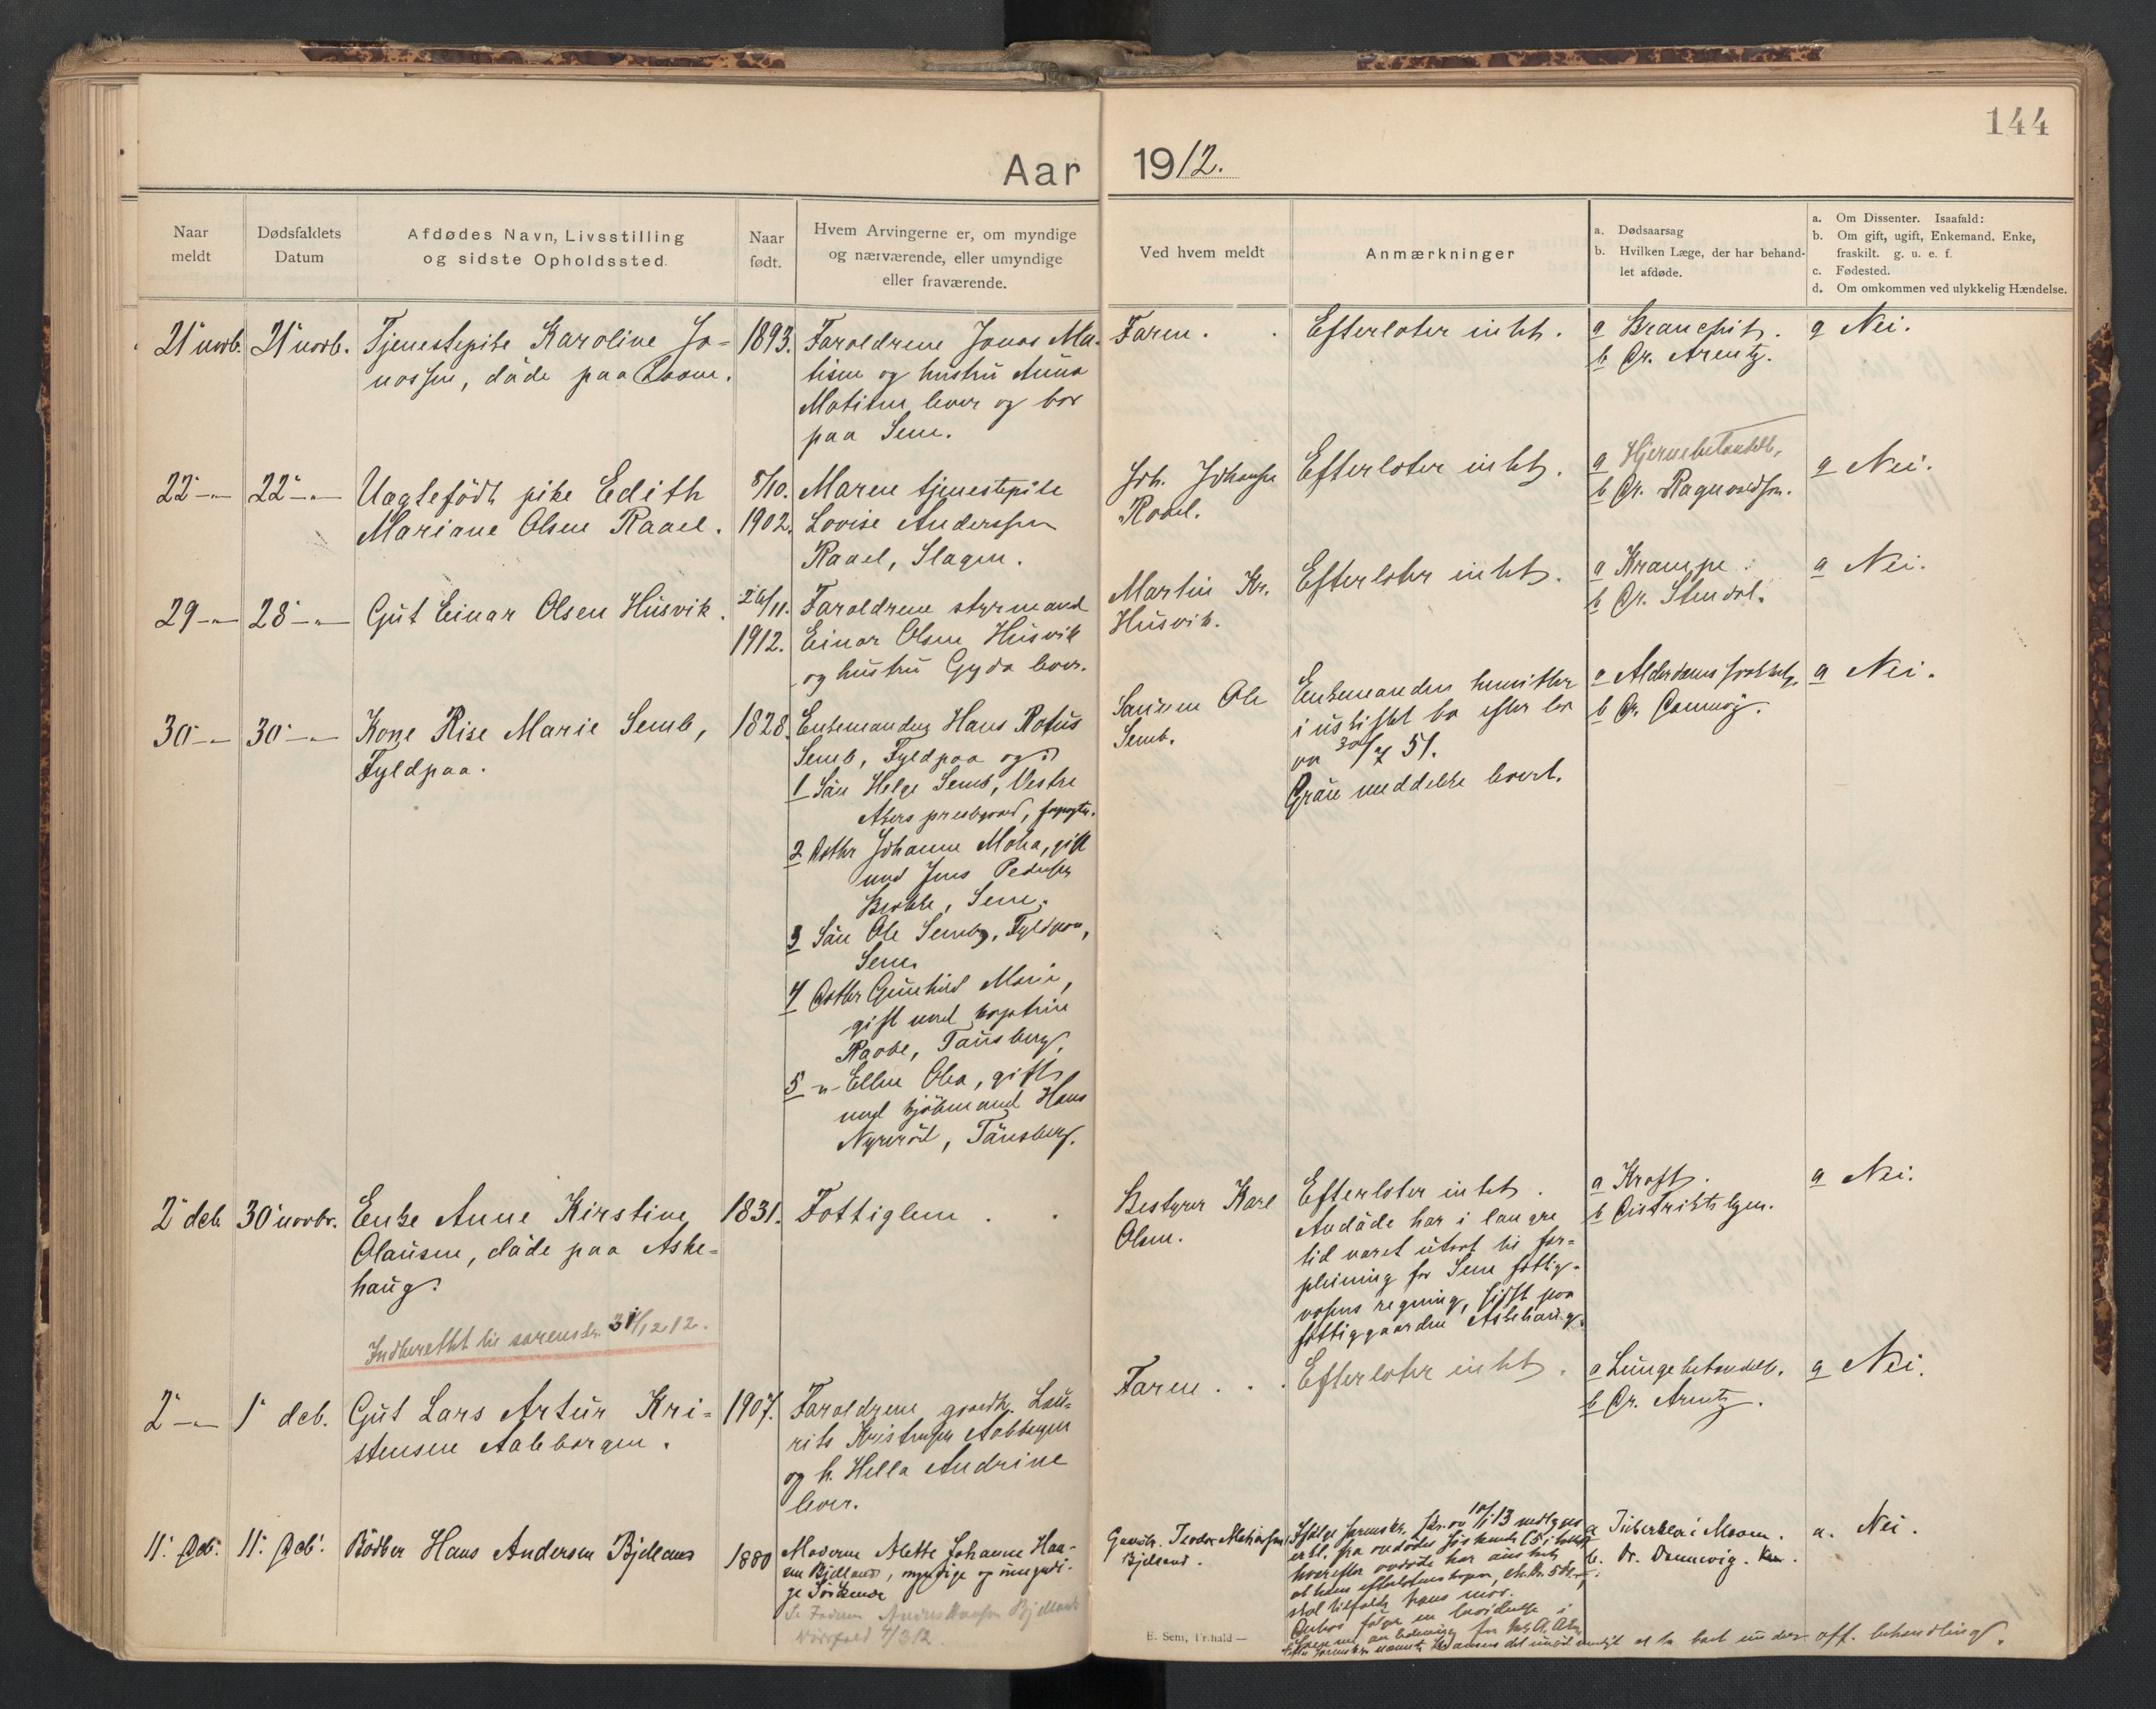 144
Aar 1912.
Naar meldt
Dødsfaldets Datum
Afdødes Navn, Livsstilling
og sidste Opholdssted.
Naar født.
Hvem Arvingerne er, om myndige
og nærværende, eller umyndige
eller fraværende.
Ved hvem meldt
Anmærkninger
a. Dødsaarsag
b. Hvilken Læge, der har behand-
let afdøde.
a. Om Dissenter. Isaafald:
b. Om gift, ugift, Enkemand, Enke,
fraskilt. g. u. e. f.
c. Fødested.
d. Om omkommen ved ulykkelig Hændelse.
21 novb. 21 novb. Tjenestepike Karoline Jo-
nassen, døde paa
1893.
Foreldrene Jonas Ma-
tisen og hustru Anna
Matisen lever og bor
paa Sem.
Faren.
Efterlater intet.
a
b Dr. Arentz.
a Nei.
22 -"- 22 -"- Uægtefödt pike Edith
Mariane Olsen Raael.
8/10.
1902.
Maren tjenestepike
Lovise Anderssen
Raael, Slagen.
Joh. Johansen
Raael.
Efterlater intet.
a Hjernebetændelse,
b Dr. Ragnvaldsen.
a Nei.
29 -"- 28 -"- Gut Einar Olsen Husvik.
26/11.
1912.
Foreldrene styrmand
Einar Olsen Husvik
og hustru Gyda lever.
Martin Kr.
Husvik.
Efterlater intet.
a Krampe.
b Dr. Stendal.
a Nei.
30 -"- 30 -"- Kone Rise Marie Semb,
Fyldpaa.
1828.
Enkemanden Hans Rofus
Semb, Fyldpaa og
1 Sön Helge Semb, Vestre
Akers prestegaard,
2 Datter Johanne Matea, gift
med Jens Pedersen
Sem.
3 Sön Ole Semb, Fyldpaa,
Sem.
4 Datter Gunhild Marie,
gift med kaptein
Tönsberg.
5 -"- Ellen Olea, gift
med kjöbmand Hans
Tönsberg.
Sönnen Ole
Semb.
Enkemanden hensitter
i uskiftet bo efter lov
av 30/7 51.
meddelelse levert.
a
b Dr.
a Nei.
2 deb. 30 novbr. Enke Anne Kirstine
Olausen, döde paa Aske-
haug.
1831.
Fattiglem.
Bestyrer Karl
Olsen.
Efterlater intet.
Avdöde har i længre
tid været utsat til for-
pleining for Sem fattig-
væsens regning, sidst paa
fattiggaarden Askehaug.
a Kræft.
b Distriktslægen.
a Nei.
Indberettet til sorenskr. 31/12 12.
2 -"- 1 deb. Gut Lars Artur Kri-
stensen Aaleborgen.
1907.
Foreldrene gaardbr. Lau-
rits Kristensen
og h. Hella Andrine
lever.
Faren.
Efterlater intet.
a Lungebetændelse.
b Dr. Arentz.
a Nei.
11. Deb. 11. Deb. Bödker Hans Andersen Bjelland
1880
Moderen Alette Johanne Han-
sen Bjelland, myndige og umyndi-
ge Söskende
Se Faderen Anders Hansen Bjelland
dödsfald 4/3 12.
Gaardbr. Teodor Mathiassen
Bjelland.
Ifølge sorenskr. skr. av 10/1 13
erkl. fra avdödes söskende
hvorefter avdöde har
skal tilfalde hans mor.
a Tuberklar i Maven.
b. Dr. Dannevig.
a. Nei.
off. behandling.
E. Sem, Fr.hald —